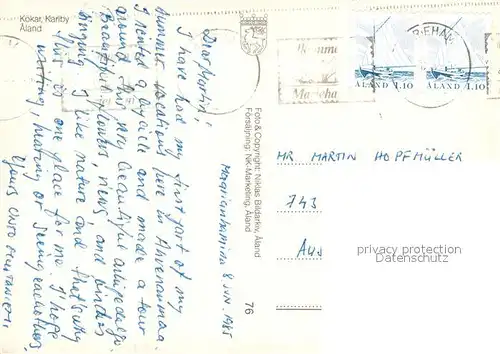 Kökar, Karlby
Åland
Maarianhamina 8 JUN. 1985
Dear Martin!
I have had my first part of my
summer vacations here in Ahvenanmaa.
I rented a bicycle and made a tour
around this very beautiful archipelago.
Beautiful flowers, views and birds
singing. I like nature and that's why
this is one place for me. I hope
writing, hearing or seeing each other,
Yours
Foto & Copyright: Niklas Bildarkiv, Åland
Försäljning: NK-Marketing, Åland
76
ÅLAND 1.10
ÅLAND 1.10
MR MARTIN HOPFMÜLLER
743
AUS
privacy protection
Datenschutz